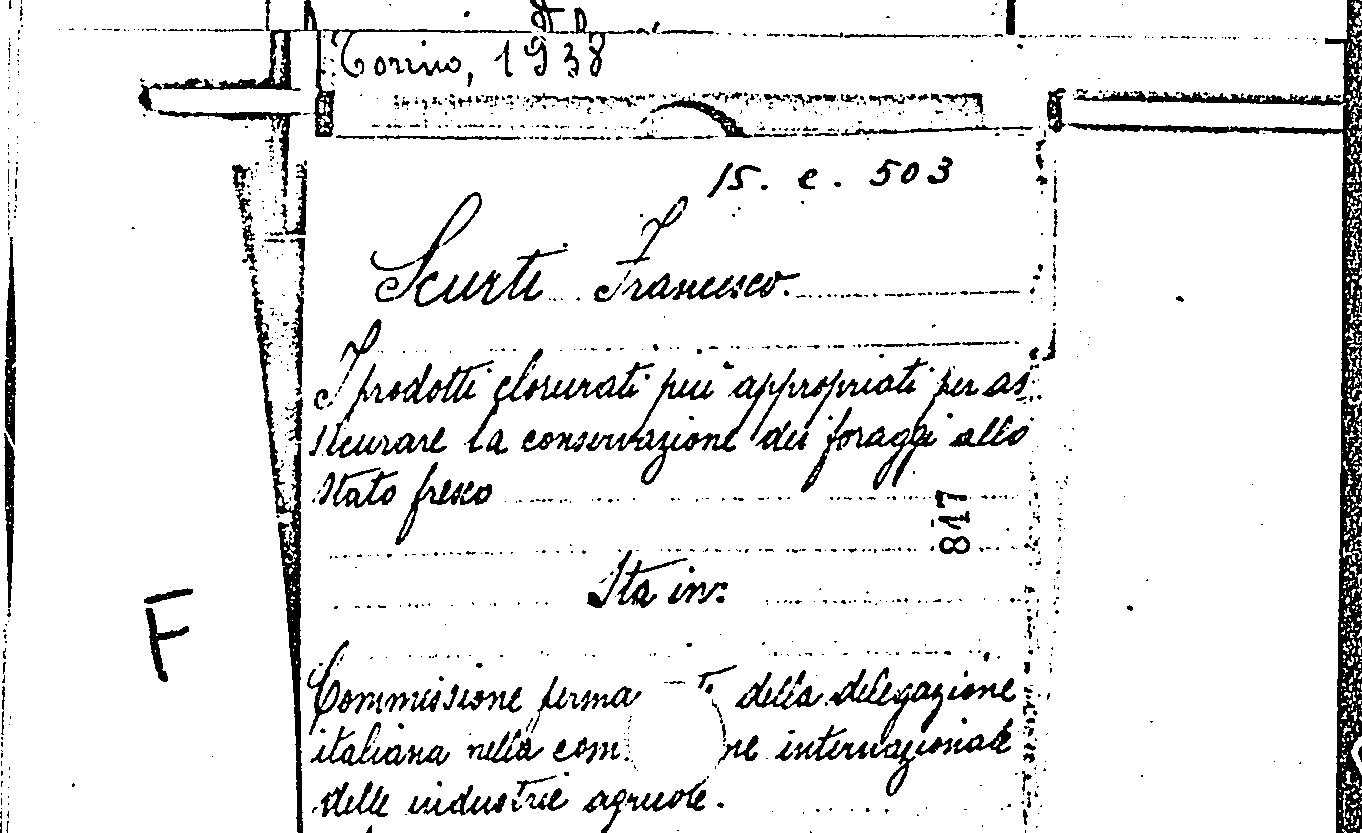 Torino, 1938
15. c. 503
Scurti Francesco.
I prodotti clorurati più appropriati per as
sicurare la conservazione dei foraggi allo
stato fresco
847
Sta in:
F
Commissione ferma della delegazione
italiana nella com ne internazionale
delle industrie agricole.